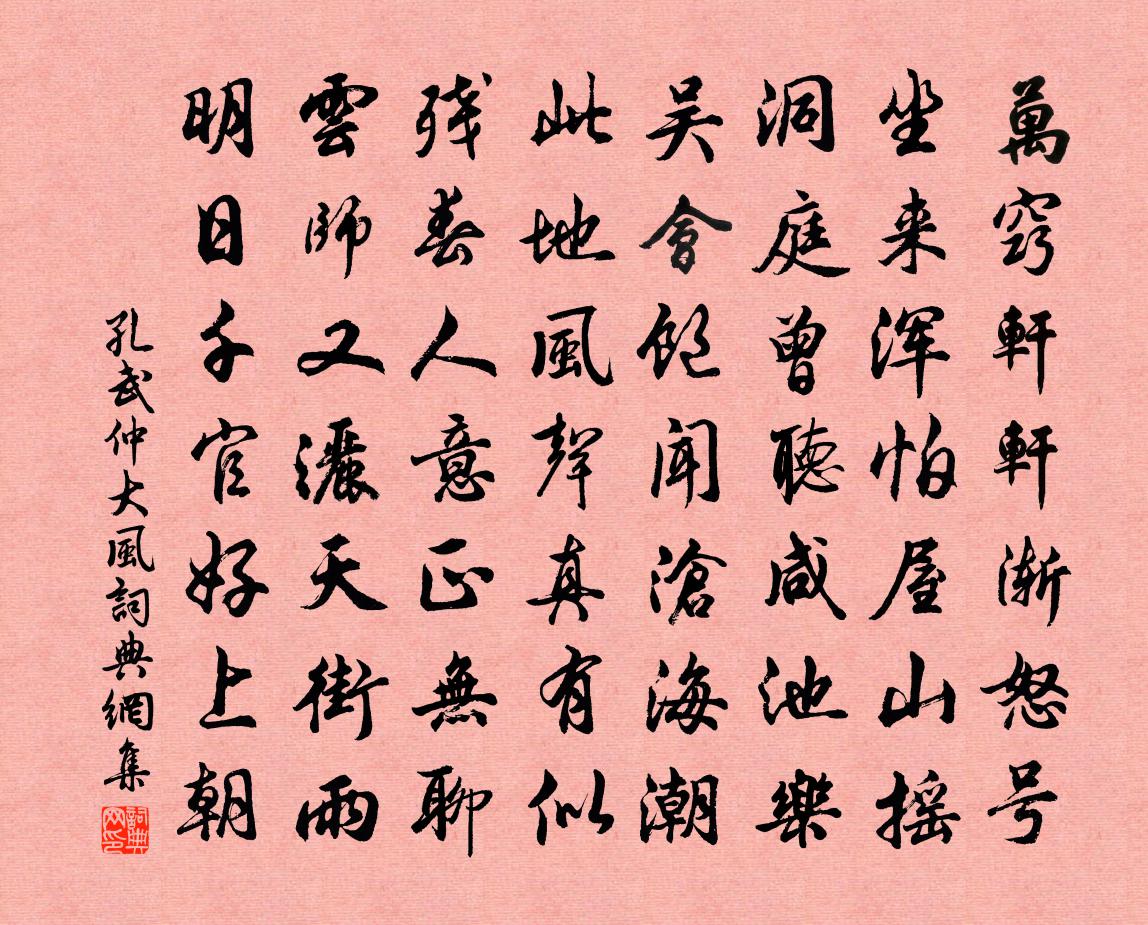 萬竅軒軒漸怒号
坐来渾怕屋山摇
洞庭曾聴咸池樂
吴會飽聞滄海潮
此地風聲真有似
残春人意正無聊
雲師又灑天街雨
明日千官好上朝
孔武仲大風詞典網集
詞典网印